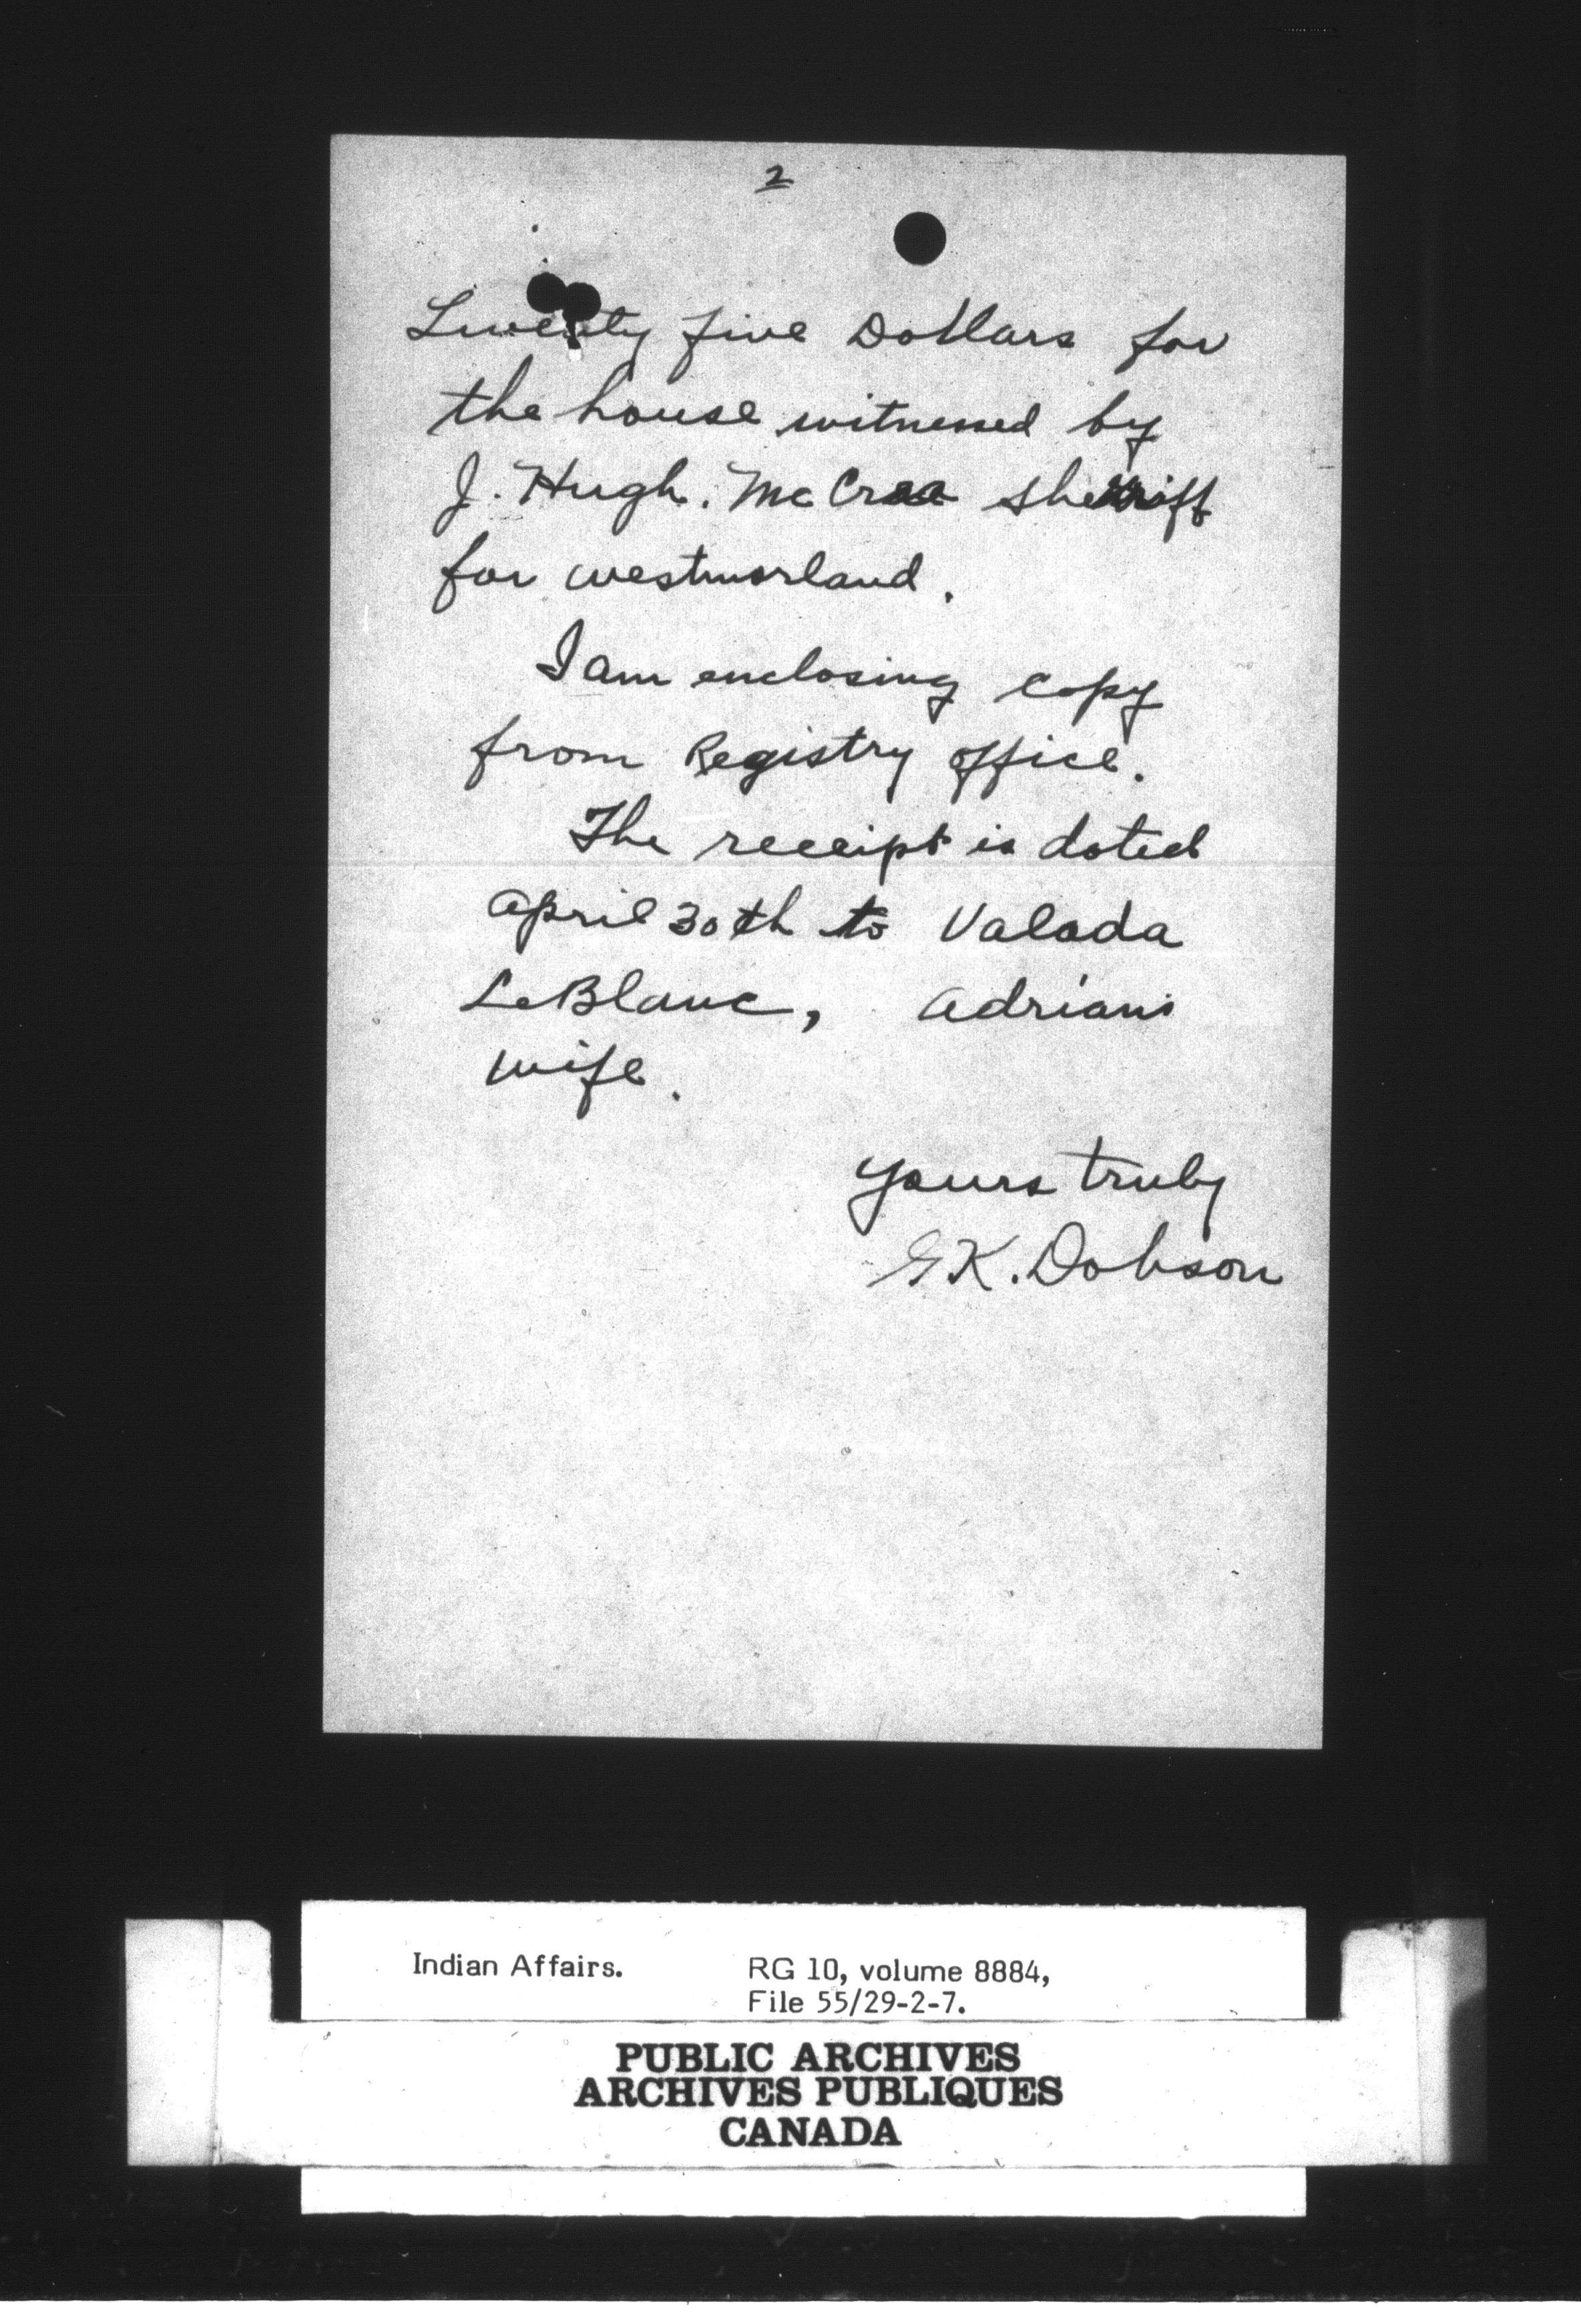 2
Twenty five Dollars for
the house witnessed by
J. Hugh. McCrea sheriff
for westmorland.
I am enclosing copy
from Registry office.
The receipt is dated
april 30th to Valada
LeBlanc, adrians
wife.
yours truly
G K. Dobson
Indian Affairs. RG 10, volume 8884,
File 55/29-2-7.
PUBLIC ARCHIVES
ARCHIVES PUBLIQUES
CANADA